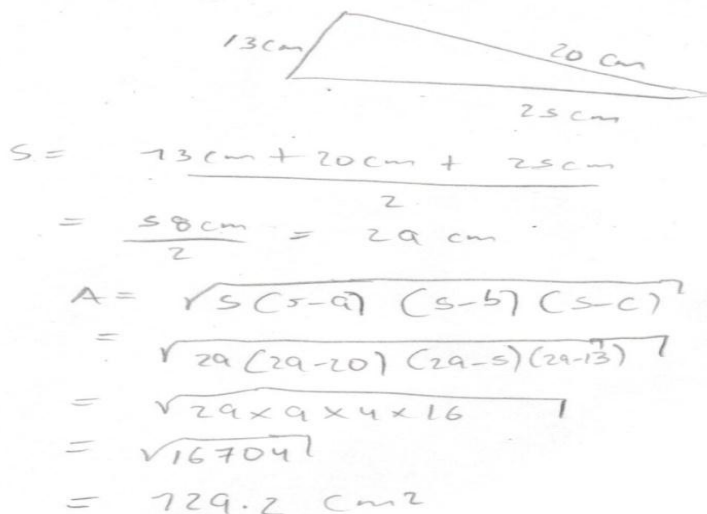 13cm
20 cm
25 cm
S = 13cm + 20cm + 25cm
2
= 58cm = 29 cm
2
A = √s(s-a) (s-b) (s-c)
= √29 (29-20) (29-5) (29-13)
= √29 x 9 x 4 x 16
= √16704
= 129.2 cm2